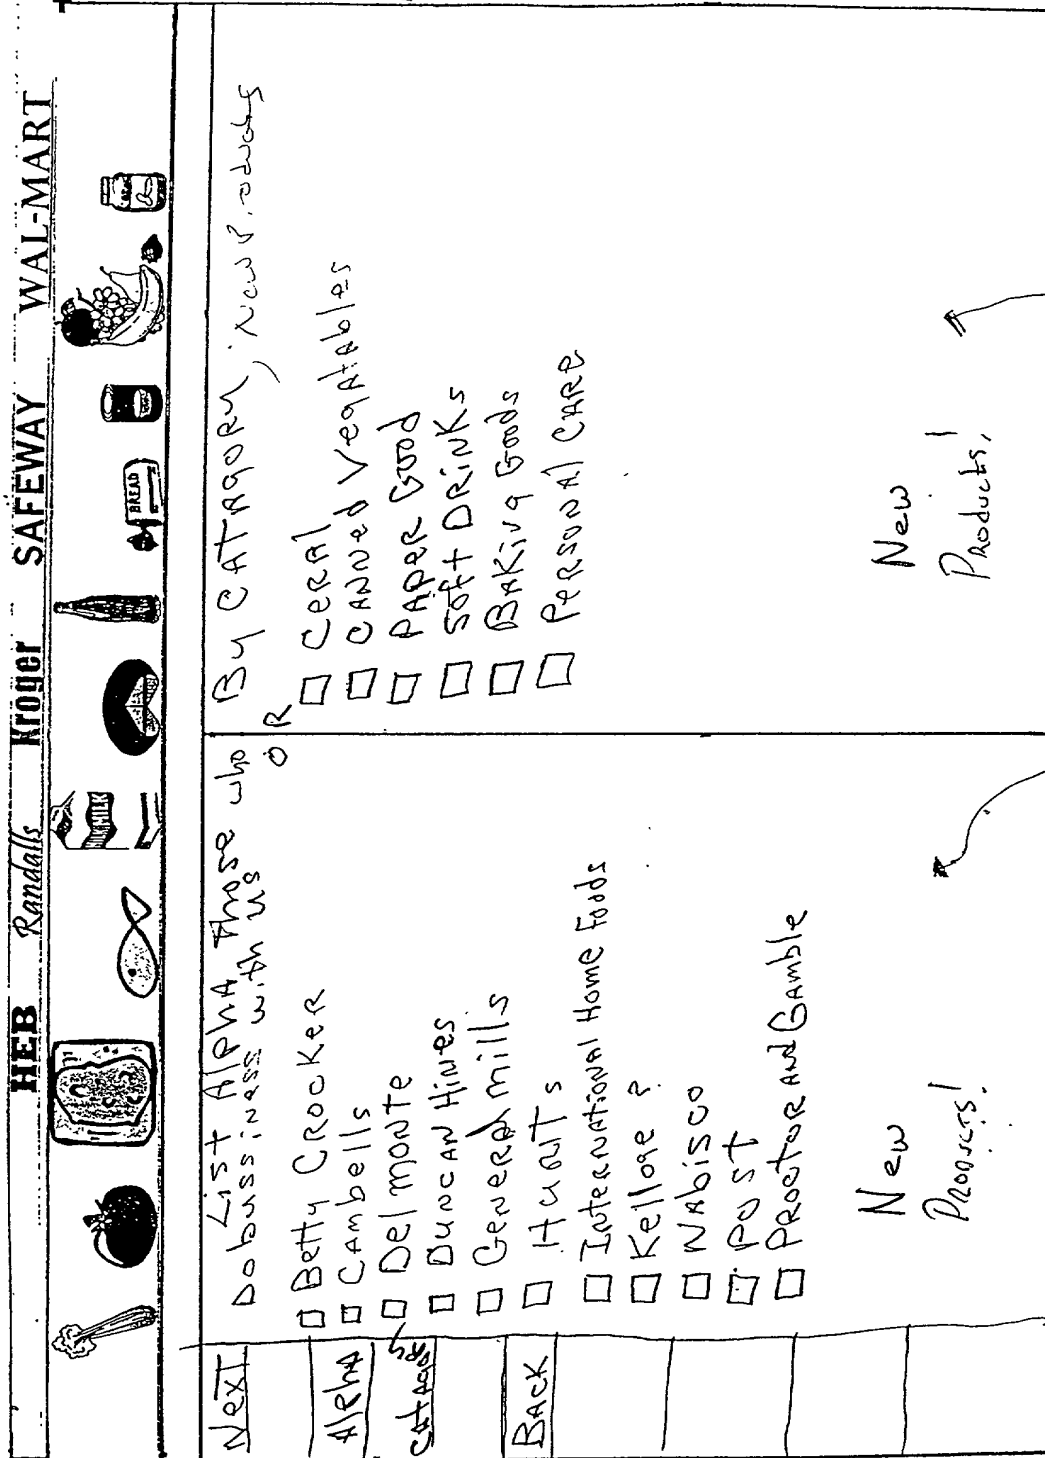 HEB Randalls Kroger SAFEWAY WAL-MART
BREAD
Next
Alpha
Catagory
Back
List Alpha Those who
Do bussiness with us
OR
Betty Crocker
Cambells
Del monte
Duncan Hines
General mills
Hunts
International Home Foods
Kelloge ?
Nabisco
Post
Proctor and Gamble
New
Products!
By Catagory, New Products
Ceral
Canned Vegatables
Paper Good
Soft Drinks
Baking Goods
Personal Care
New
Products!